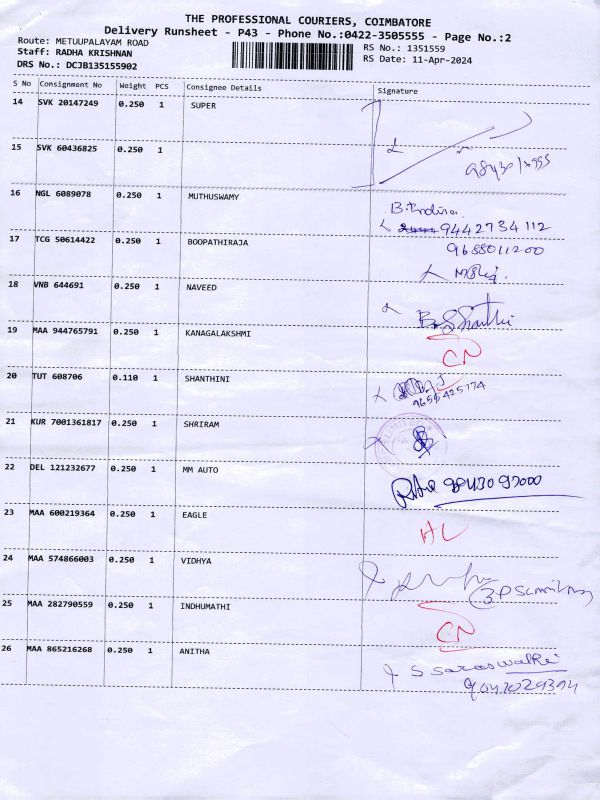 THE PROFESSIONAL COURIERS, COIMBATORE
Delivery Runsheet - P43 - Phone No.:0422-3505555 - Page No.:2
Route: METUUPALAYAM ROAD
RS No.: 1351559
Staff: RADHA KRISHNAN
RS Date: 11-Apr-2024
DRS No.: DCJB135155902
S No Consignment No Weight PCS Consignee Details Signature
14 SVK 20147249 0.250 1 SUPER
15 SVK 60436825 0.250 1
16 NGL 6089078 0.250 1 MUTHUSWAMY
9442734112
17 TCG 50614422 0.250 1 BOOPATHIRAJA
9688011200
18 VNB 644691 0.250 1 NAVEED
19 MAA 944765791 0.250 1 KANAGALAKSHMI
CN
20 TUT 608706 0.110 1 SHANTHINI
9655425774
21 KUR 7001361817 0.250 1 SHRIRAM
22 DEL 121232677 0.250 1 MM AUTO
23 MAA 600219364 0.250 1 EAGLE
24 MAA 574866003 0.250 1 VIDHYA
25 MAA 282790559 0.250 1 INDHUMATHI
CN
26 MAA 865216268 0.250 1 ANITHA